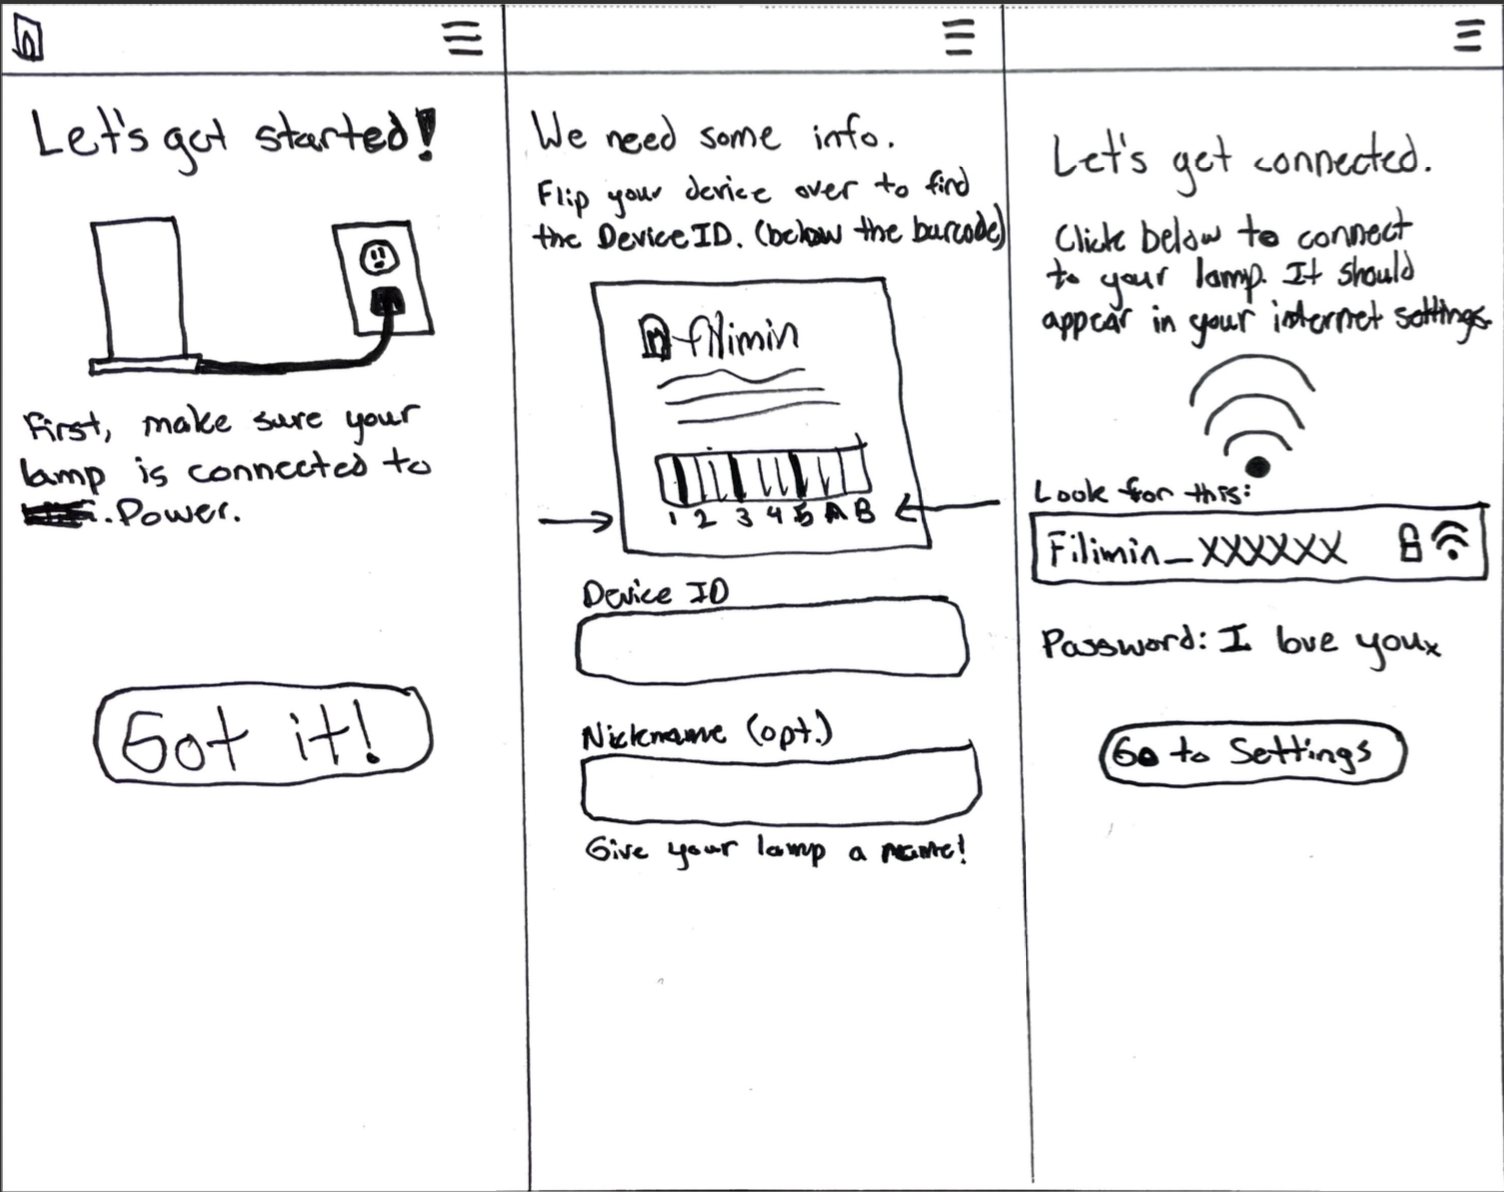 Let's get started!
First, make sure your
lamp is connected to
. Power.
Got it!
We need some info.
Flip your device over to find
the Device ID. (below the barcode)
filimin
1 2 3 4 5 A B
Device ID
Nickname (opt.)
Give your lamp a name!
Let's get connected.
Click below to connect
to your lamp. It should
appear in your internet settings.
Look for this:
Filimin_XXXXXX
Password: I love youx
Go to Settings